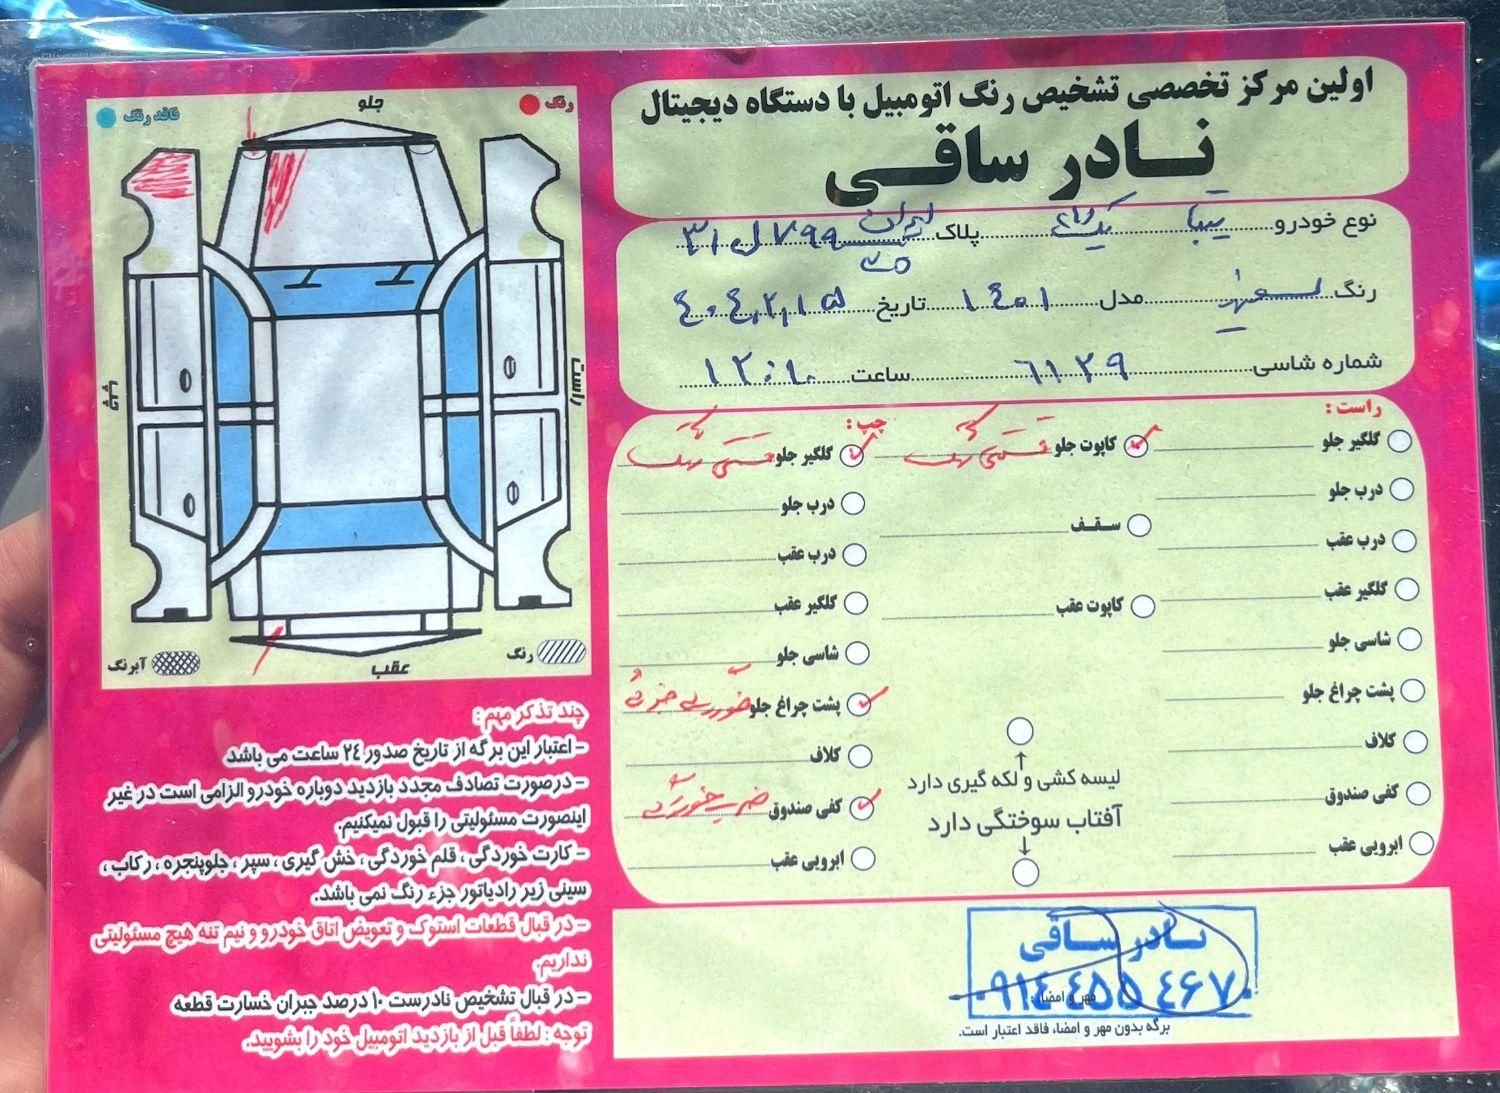 اولین مرکز تخصصی تشخیص رنگ اتومبیل با دستگاه دیجیتال
نادر ساقی
نوع خودرو تیبا یک رنگ پلاک ایران ۳۱ ل ۷۹۹
رنگ سفید مدل ۱۴۰۱ تاریخ ۴۰۴,۲,۱۵
شماره شاسی ۶۱۲۹ ساعت ۱۲:۱۰
راست :
گلگیر جلو
درب جلو
درب عقب
گلگیر عقب
شاسی جلو
پشت چراغ جلو
کلاف
کفی صندوق
ابرویی عقب
کاپوت جلو قسمتی رنگ
سقف
کاپوت عقب
لیسه کشی و لکه گیری دارد
آفتاب سوختگی دارد
چپ :
گلگیر جلو قسمتی رنگ
درب جلو
درب عقب
گلگیر عقب
شاسی جلو
پشت چراغ جلو خوردگی جزئی
کلاف
کفی صندوق ضربه خوردگی
ابرویی عقب
نادر ساقی
۰۹۱٤ ٤۵۵ ٤۶۷۰
مهر و امضاء :
برگه بدون مهر و امضاء فاقد اعتبار است.
رنگ
جلو
فاقد رنگ
راست
چپ
رنگ
عقب
آبرنگ
چند تذکر مهم :
- اعتبار این برگه از تاریخ صدور ۲٤ ساعت می باشد
- درصورت تصادف مجدد بازدید دوباره خودرو الزامی است در غیر
اینصورت مسئولیتی را قبول نمیکنیم.
- کارت خوردگی ، قلم خوردگی ، خش گیری ، سپر ، جلوپنجره ، رکاب ،
سینی زیر رادیاتور جزء رنگ نمی باشد.
- در قبال قطعات استوک و تعویض اتاق خودرو و نیم تنه هیچ مسئولیتی
نداریم.
- در قبال تشخیص نادرست ۱۰ درصد جبران خسارت قطعه
توجه : لطفاً قبل از بازدید اتومبیل خود را بشویید.